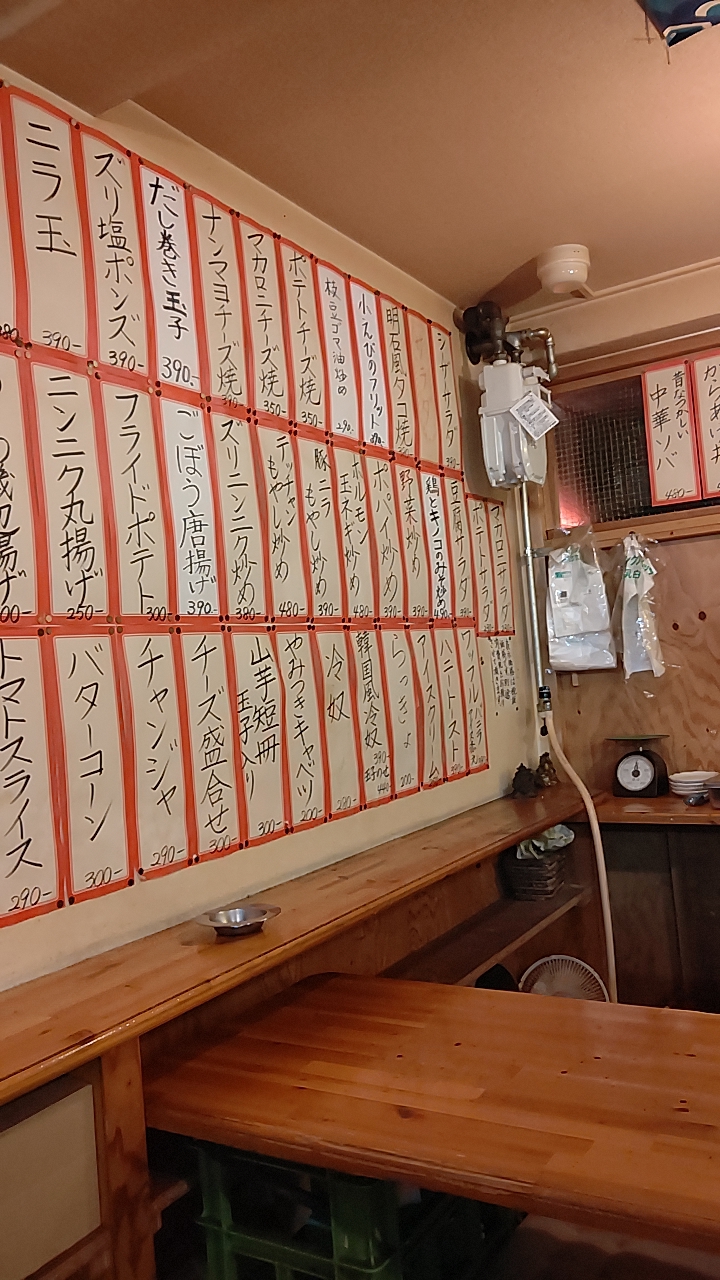 ニラ玉
390-
ズリ塩ポンズ
390-
だし巻き玉子
390.-
ナンマヨチーズ焼
390-
マカロニチーズ焼
350-
ポテトチーズ焼
350-
枝豆ゴマ油炒め
290.-
小えびのフリット
明石風タコ焼
シーザーサラダ
ニンニク丸揚げ
250-
フライドポテト
300-
ごぼう唐揚げ
390.-
ズリニンニク炒め
380-
テッチャン
もやし炒め
480-
豚ニラ
もやし炒め
390-
ホルモン
玉ネギ炒め
480-
ポパイ炒め
390-
野菜炒め
390-
鶏とキノコのみそ炒め
490.-
豆腐サラダ
390-
ポテトサラダ
マカロニサラダ
トマトスライス
290-
バターコーン
300-
チャンジャ
290-
チーズ盛合せ
300-
山芋短冊
玉子入り
300-
やみつきキャベツ
200-
冷奴
290-
韓国風冷奴
390-
玉子のせ
440-
らっきょ
200-
アイスクリーム
ハニートースト
昔なつかしい
中華ソバ
480-